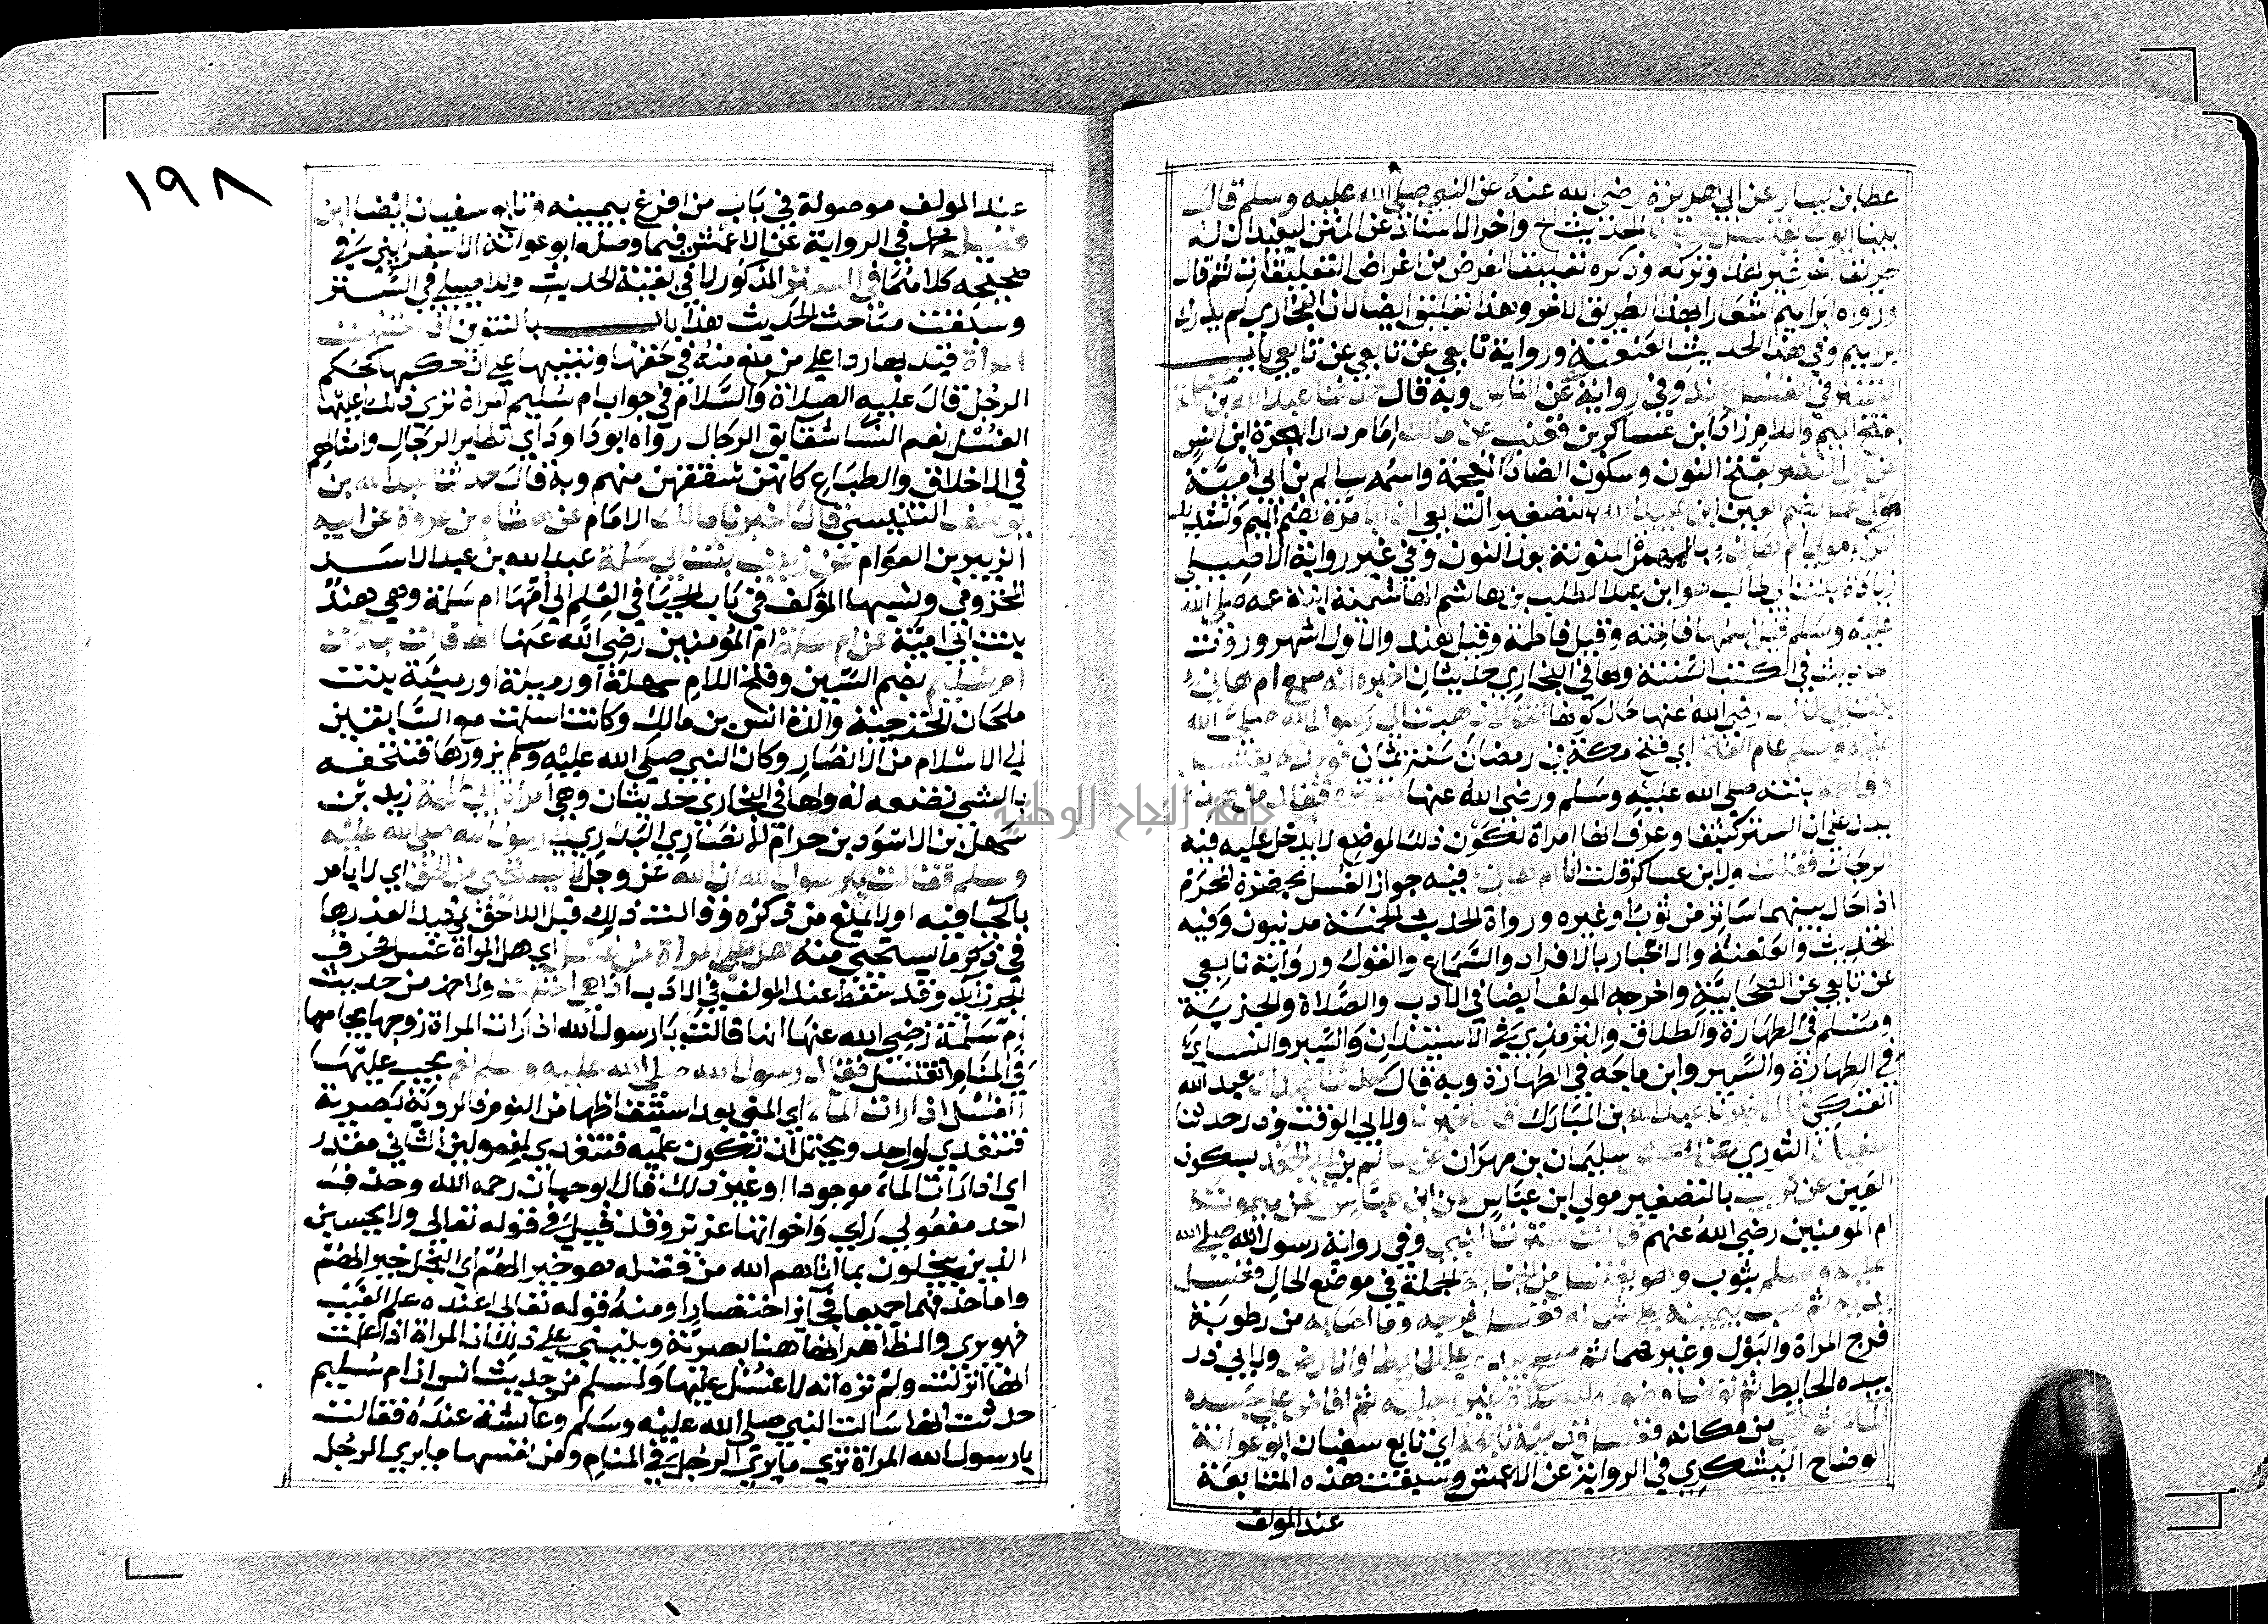 عطا بن يسار عن ابي هريرة رضي الله عنه عن النبي صلي الله عليه وسلم قال
بينا ايوب يغتسل الحديث الخ واخر الاسناد عن المتن ليفيد ان له
طريقا اخر غير هذا وتركه وذكره تعليقا لغرض من اغراض التعليقات ثم قال
ورواه ابراهيم اشعارا بهذا الطريق الاخر وهذا تعليق ايضا لان البخاري لم يدرك
ابراهيم وفي هذا الحديث العنعنة ورواية تابعي عن تابعي عن تابعي باب
التستر في الغسل عند وفي رواية عن الناس وبه قال حدثنا عبد الله بن مسلمة
بفتح الميم واللام زاد ابن عساكر بن قعنب عن مالك امام دار الهجرة ابن انس
عن ابي النضر بفتح النون وسكون الضاد المعجمة واسمه سالم بن ابي امية
مولي عمر بضم العين ابن عبيد الله بالتصغير التابعي ان ابا مرة بضم الميم وتشديد
الرا مولي ام هاني بالهمزة المنونة بعد النون وفي غير رواية الاصيلي
زيادة بنت ابي طالب هو ابن عبد المطلب بن هاشم الهاشمية ابنة عمه صلي الله
عليه وسلم قيل اسمها فاختة وقيل فاطمة وقيل هند والاول اشهر وروت
احاديث في الكتب الستة ولها في البخاري حديثان اخبره انه سمع ام هاني
بنت ابي طالب رضي الله عنها حال كونها تقول ذهبت الي رسول الله صلي الله
عليه وسلم عام الفتح اي فتح مكة في رمضان سنة ثمان فوجدته يغتسل
وفاطمة بنته صلي الله عليه وسلم ورضي الله عنها تستره فقال من هذه
يدل علي ان الستر كثيف وعرف انها امراة لكون ذلك الموضع لا يدخل عليه فيه
الرجال فقلت ولابن عساكر قلت انا ام هاني فيه جواز الغسل بحضرة المحرم
اذا حال بينهما ساتر من ثوب او غيره ورواة الحديث الخمسة مدنيون وفيه
التحديث والعنعنة والاخبار بالافراد والسماع والقول ورواية تابعي
عن تابعي عن الصحابية واخرجه المولف ايضا في الادب والصلاة والجزية
ومسلم في الطهارة والطلاق والترمذي في الاستيذان والسير والنساي
في الطهارة والسير وابن ماجه في الطهارة وبه قال حدثنا عبدان عبد الله
العتكي قال اخبرنا عبد الله بن المبارك قال اخبرنا ولابي الوقت وذر حدثنا
سفيان الثوري عن الاعمش سليمان بن مهران عن سالم بن ابي الجعد بسكون
العين عن كريب بالتصغير مولي ابن عباس عن ابن عباس عن ميمونة
ام المومنين رضي الله عنهم قالت سترت النبي وفي رواية رسول الله صلي الله
عليه وسلم بثوب وهو يغتسل من الجنابة الجملة في موضع الحال فغسل
يديه ثم صب بيمينه علي شماله فغسل فرجه وما اصابه من رطوبة
فرج المراة والبول وغيرهما ثم مسح بيده علي الحايط او الارض ولابي ذر
بيده الحايط ثم توضا وضوءه للصلاة غير رجليه ثم افاض علي جسده
الماء ثم تنحي من مكانه فغسل قدميه تابعه اي تابع سفيان ابو عوانة
الوضاح اليشكري في الرواية عن الاعمش وسيقت هذه المتابعة
عند المولف
١٩٨
عند المولف موصولة في باب من افرغ بيمينه وتابع سفيان ايضا ابن
فضيل محمد في الرواية عن الاعمش فيما وصله ابو عوانة الاسفرايني في
صحيحه كلاهما في الستر المذكور لا في بقية الحديث وللاصيلي في التستر
وسبقت مباحث الحديث هذا باب بالتنوين اذا احتلمت
المراة قيد بها ردا علي من منع منه في حقها وتنبيها علي ان حكمها كحكم
الرجل قال عليه الصلاة والسلام في جواب ام سليم المراة تري ذلك اعليها
الغسل نعم النسا شقايق الرجال رواه ابو داود اي نظاير الرجال وامثالهم
في الاخلاق والطباع كانهن شققن منهم وبه قال حدثنا عبد الله بن
يوسف التنيسي قال اخبرنا مالك الامام عن هشام بن عروة عن ابيه
الزبير بن العوام عن زينب بنت ابي سلمة عبد الله بن عبد الاسد
المخزومي ونسبها المولف في باب الحيا في العلم الي امها ام سلمة وهي هند
بنت ابي امية عن ام سلمة ام المومنين رضي الله عنها انها قالت جاءت
ام سليم بضم السين وفتح اللام سهلة او رميلة او رميثة بنت
ملحان الخزرجية والدة انس بن مالك وكانت اسلمت مع السابقين
الي الاسلام من الانصار وكان النبي صلي الله عليه وسلم يزورها فتتحفه
بالشي تصنعه له ولها في البخاري حديثان وهي امراة ابي طلحة زيد بن
سهل بن الاسود بن حرام الانصاري البدري الي رسول الله صلي الله عليه
وسلم فقالت يا رسول الله ان الله عز وجل لا يستحيي من الحق اي لا يامر
بالحيا فيه او لا يمتنع من ذكره وقالت ذلك قبل اللاحق تمهيد العذرها
في ذكر ما يستحيي منه هل علي المراة من غسل اي هل المراة غسل فحرف
الجر زايد وقد سقط عند المولف في الادب اذا هي احتلمت ولاحمد من حديث
ام سلمة رضي الله عنها انها قالت يا رسول الله اذا رات المراة زوجها يجامعها
في المنام اتغتسل فقال رسول الله صلي الله عليه وسلم نعم يجب عليها
الغسل اذا رات الماء اي المني بعد استيقاظها من النوم فالروية بصرية
فتتعدي لواحد ويحتمل ان تكون علمية فتتعدي لمفعولين الثاني مقدر
اي اذا رات الماء موجودا او غير ذلك قال ابو حيان رحمه الله وحذف
احد مفعولي راي واخواتها عزيز وقد قيل في قوله تعالي ولا يحسبن
الذين يبخلون بما اتاهم الله من فضله هو خير الهم اي البخل خيرا لهم
واما حذفهما جميعا فجايز اختصارا ومنه قوله تعالي اعنده علم الغيب
فهو يري والظاهر انها هنا بصرية وينبني علي ذلك ان المراة اذا علمت
انها انزلت ولم تره انه لا غسل عليها ولمسلم من حديث انس ان ام سليم
حدثت انها سالت النبي صلي الله عليه وسلم وعايشة عنده فقالت
يا رسول الله المراة تري ما يري الرجل في المنام ومن نفسها ما يري الرجل
جامعة النجاح الوطنية